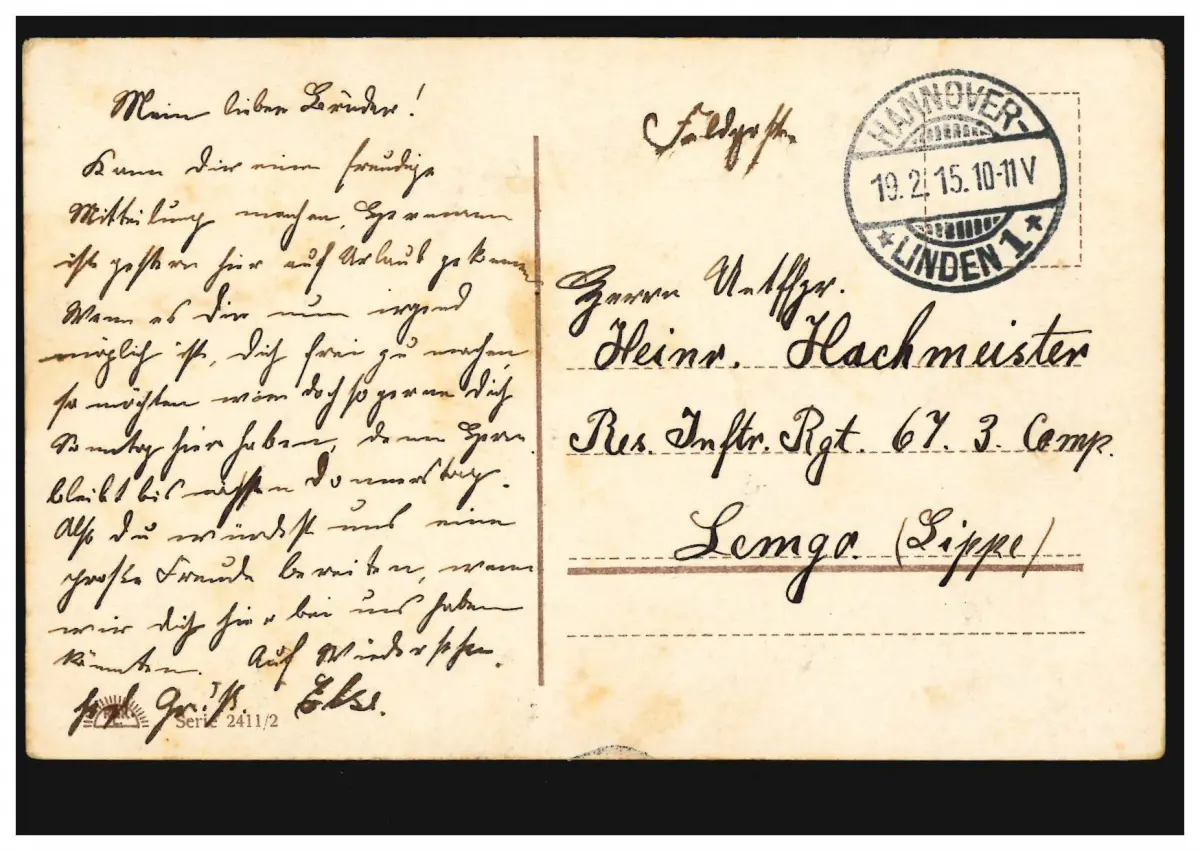 Mein lieber Brüder!
Kann Dir eine freudige
Mitteilung machen, Hermann
ist gestern hier auf Urlaub gekommen
Wenn es Dir nun irgend
möglich ist, Dich frei zu machen,
so möchten wir Dich so gerne
Sonntag hier haben, denn Herm.
bleibt bis nächsten Donnerstag.
Also Du würdest uns eine
große Freude bereiten, wenn
wir Dich hier bei uns haben
könnten. Auf Wiedersehen.
Gruß. Else.
Serie 2411/2
Feldpost
HANNOVER-
19.2.15.10-11V
*LINDEN 1*
Herrn
Heinr. Hachmeister
Res. Inftr. Rgt. 67. 3. Comp.
Lemgo. (Lippe)